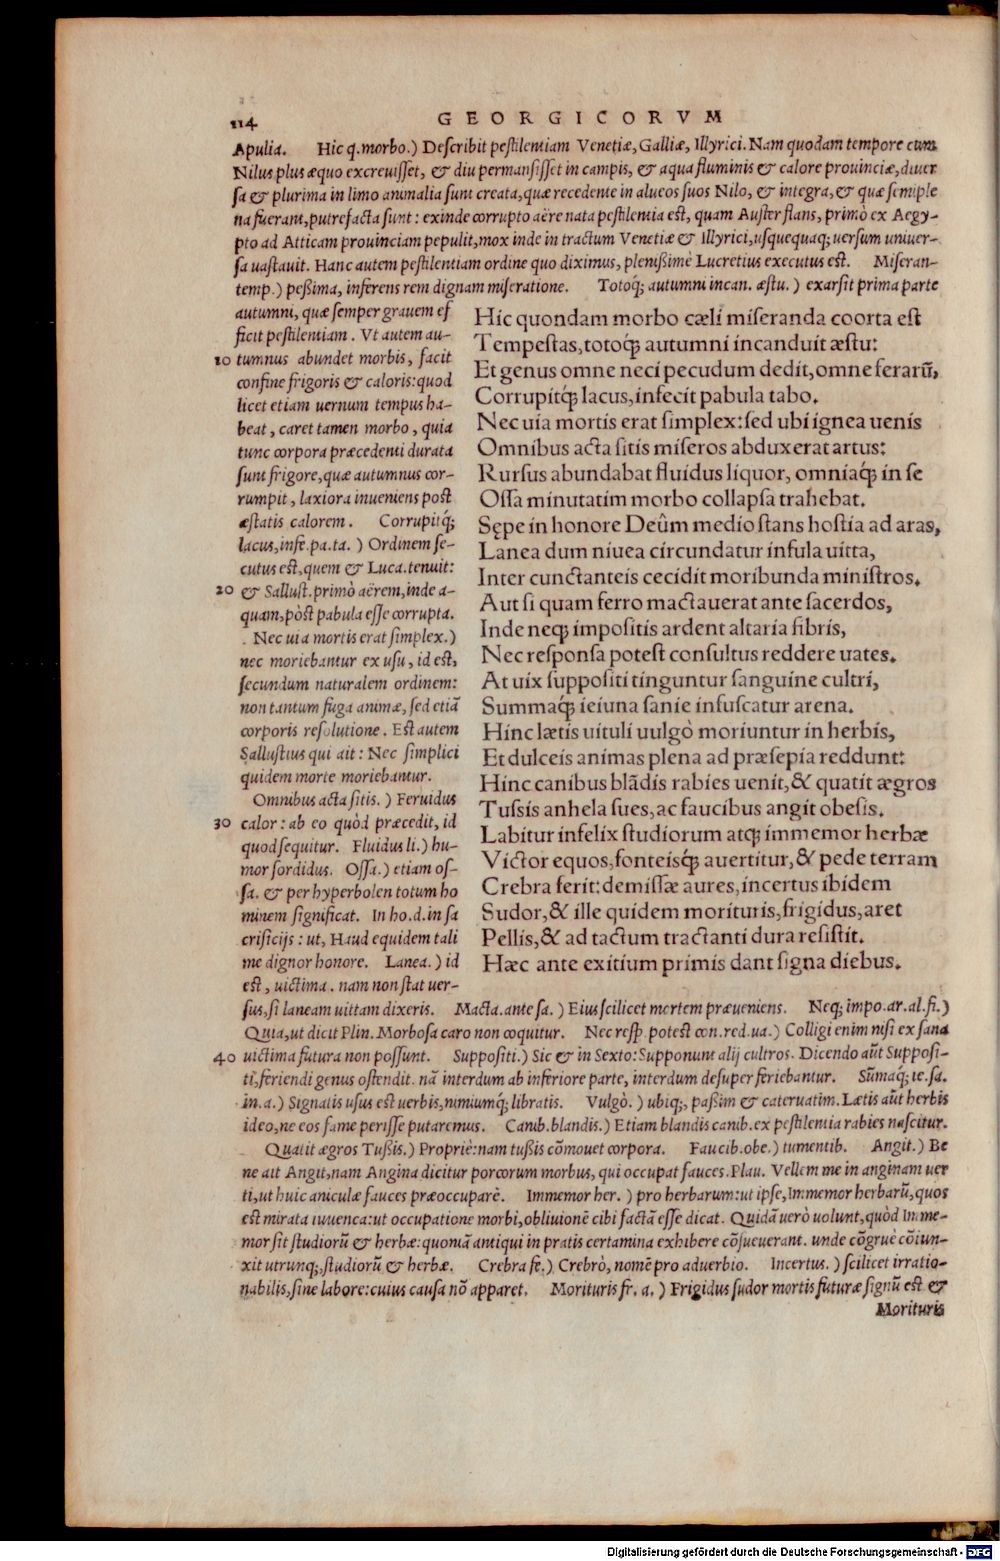 114 GEORGICORVM
Apulia. Hic q.morbo.) Describit pestilentiam Venetiæ, Galliæ, Illyrici. Nam quodam tempore cum
Nilus plus æquo excreuisset, & diu permansisset in campis, & aqua fluminis & calore prouinciæ, diuer
sa & plurima in limo animalia sunt creata, quæ recedente in alueos suos Nilo, & integra, & quæ semiple
na fuerant, putrefacta sunt: exinde corrupto aëre nata pestilentia est, quam Auster flans, primò ex Aegy-
pto ad Atticam prouinciam pepulit, mox inde in tractum Venetiæ & Illyrici, usquequaq; uersum uniuer-
sa uastauit. Hanc autem pestilentiam ordine quo diximus, plenißimè Lucretius executus est. Miseran-
temp.) peßima, inferens rem dignam miseratione. Totoq́; autumni incan. æstu.) exarsit prima parte
autumni, quæ semper grauem ef
ficit pestilentiam. Vt autem au-
10 tumnus abundet morbis, facit
confine frigoris & caloris: quod
licet etiam uernum tempus ha-
beat, caret tamen morbo, quia
tunc corpora præcedenti durata
sunt frigore, quæ autumnus cor-
rumpit, laxiora inueniens post
æstatis calorem. Corrupitq́;
lacus, infe.pa.ta.) Ordinem se-
cutus est, quem & Luca.tenuit:
20 & Sallust. primò aërem, inde a-
quam, pòst pabula esse corrupta.
Nec uia mortis erat simplex.)
nec moriebantur ex usu, id est,
secundum naturalem ordinem:
non tantum fuga animæ, sed etiā
corporis resolutione. Est autem
Sallustius qui ait: Nec simplici
quidem morte moriebantur.
Omnibus acta sitis.) Feruidus
30 calor: ab eo quòd præcedit, id
quod sequitur. Fluidus li.) hu-
mor sordidus. Ossa.) etiam os-
sa. & per hyperbolen totum ho
minem significat. In ho.d.in sa
crificijs: ut, Haud equidem tali
me dignor honore. Lanea.) id
est, uictima. nam non stat uer-
Hic quondam morbo cæli miseranda coorta est
Tempestas, totoq́; autumni incanduit æstu:
Et genus omne neci pecudum dedit, omne ferarū,
Corrupitq́; lacus, infecit pabula tabo.
Nec uia mortis erat simplex: sed ubi ignea uenis
Omnibus acta sitis miseros abduxerat artus:
Rursus abundabat fluidus liquor, omniaq́; in se
Ossa minutatim morbo collapsa trahebat.
Sępe in honore Deûm medio stans hostia ad aras,
Lanea dum niuea circundatur infula uitta,
Inter cunctanteis cecidit moribunda ministros.
Aut si quam ferro mactauerat ante sacerdos,
Inde neq; impositis ardent altaria fibris,
Nec responsa potest consultus reddere uates.
At uix suppositi tinguntur sanguine cultri,
Summaq́; ieiuna sanie infuscatur arena.
Hinc lætis uituli uulgò moriuntur in herbis,
Et dulceis animas plena ad præsepia reddunt:
Hinc canibus blādis rabies uenit, & quatit ægros
Tussis anhela sues, ac faucibus angit obesis.
Labitur infelix studiorum atq; immemor herbæ
Victor equos, fonteisq́; auertitur, & pede terram
Crebra ferit: demissæ aures, incertus ibidem
Sudor, & ille quidem morituris, frigidus, aret
Pellis, & ad tactum tractanti dura resistit.
Hæc ante exitium primis dant signa diebus.
sus, si laneam uittam dixeris. Macta.ante sa.) Eius scilicet mortem præueniens. Neq; impo.ar.al.fi.)
Quia, ut dicit Plin. Morbosa caro non coquitur. Nec resp̄. potest con.red.ua.) Colligi enim nisi ex sana
40 uictima futura non possunt. Suppositi.) Sic & in Sexto: Supponunt alij cultros. Dicendo aūt Supposi-
ti, feriendi genus ostendit. nā interdum ab inferiore parte, interdum desuper feriebantur. Sūmaq́; ie.sa.
in.a.) Signatis usus est uerbis, nimiumq́; libratis. Vulgò.) ubiq;, paßim & cateruatim. Lætis aūt herbis
ideo, ne eos fame perisse putaremus. Canib.blandis.) Etiam blandis canib.ex pestilentia rabies nascitur.
Quatit ægros Tußis.) Propriè: nam tußis cōmouet corpora. Faucib.obe.) tumentib. Angit.) Be
ne ait Angit, nam Angina dicitur porcorum morbus, qui occupat fauces. Plau. Vellem me in anginam uer
ti, ut huic aniculæ fauces præoccuparē. Immemor her.) pro herbarum: ut ipse, Immemor herbarū, quos
est mirata iuuenca: ut occupatione morbi, obliuionē cibi factā esse dicat. Quidā uerò uolunt, quòd Imme-
mor sit studiorū & herbæ: quoniā antiqui in pratis certamina exhibere cōsueuerant. unde cōgruè cōiun-
xit utrunq;, studiorū & herbæ. Crebra fe.) Crebrò, nomē pro aduerbio. Incertus.) scilicet irratio-
nabilis, sine labore: cuius causa nō apparet. Morituris fr. a.) Frigidus sudor mortis futuræ signū est &
Morituris
Digitalisierung gefördert durch die Deutsche Forschungsgemeinschaft - DFG